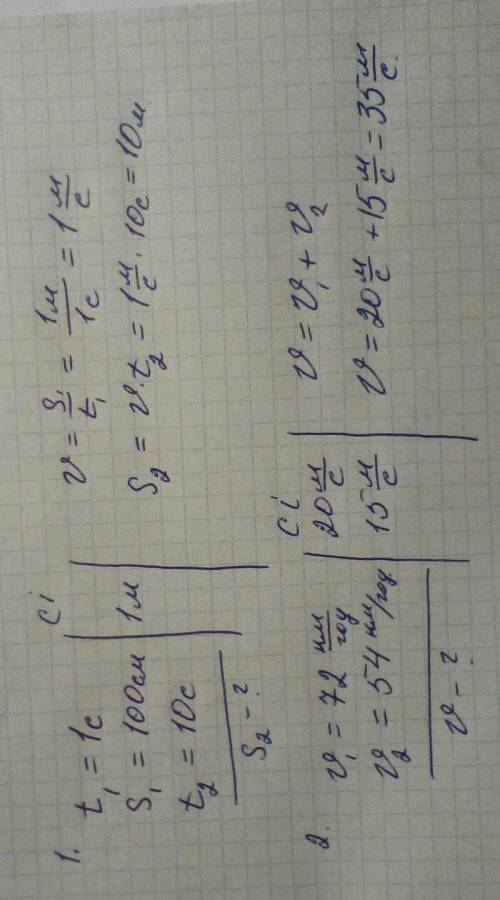 1.
t₁ = 1с
S₁ = 100см
t₂ = 10с
S₂ - ?
Сі
1м
v = S₁/t₁ = 1м/1с = 1 м/с
S₂ = v · t₂ = 1 м/с · 10с = 10м
2.
v₁ = 72 км/год
v₂ = 54 км/год
v - ?
Сі
20 м/с
15 м/с
v = v₁ + v₂
v = 20 м/с + 15 м/с = 35 м/с.